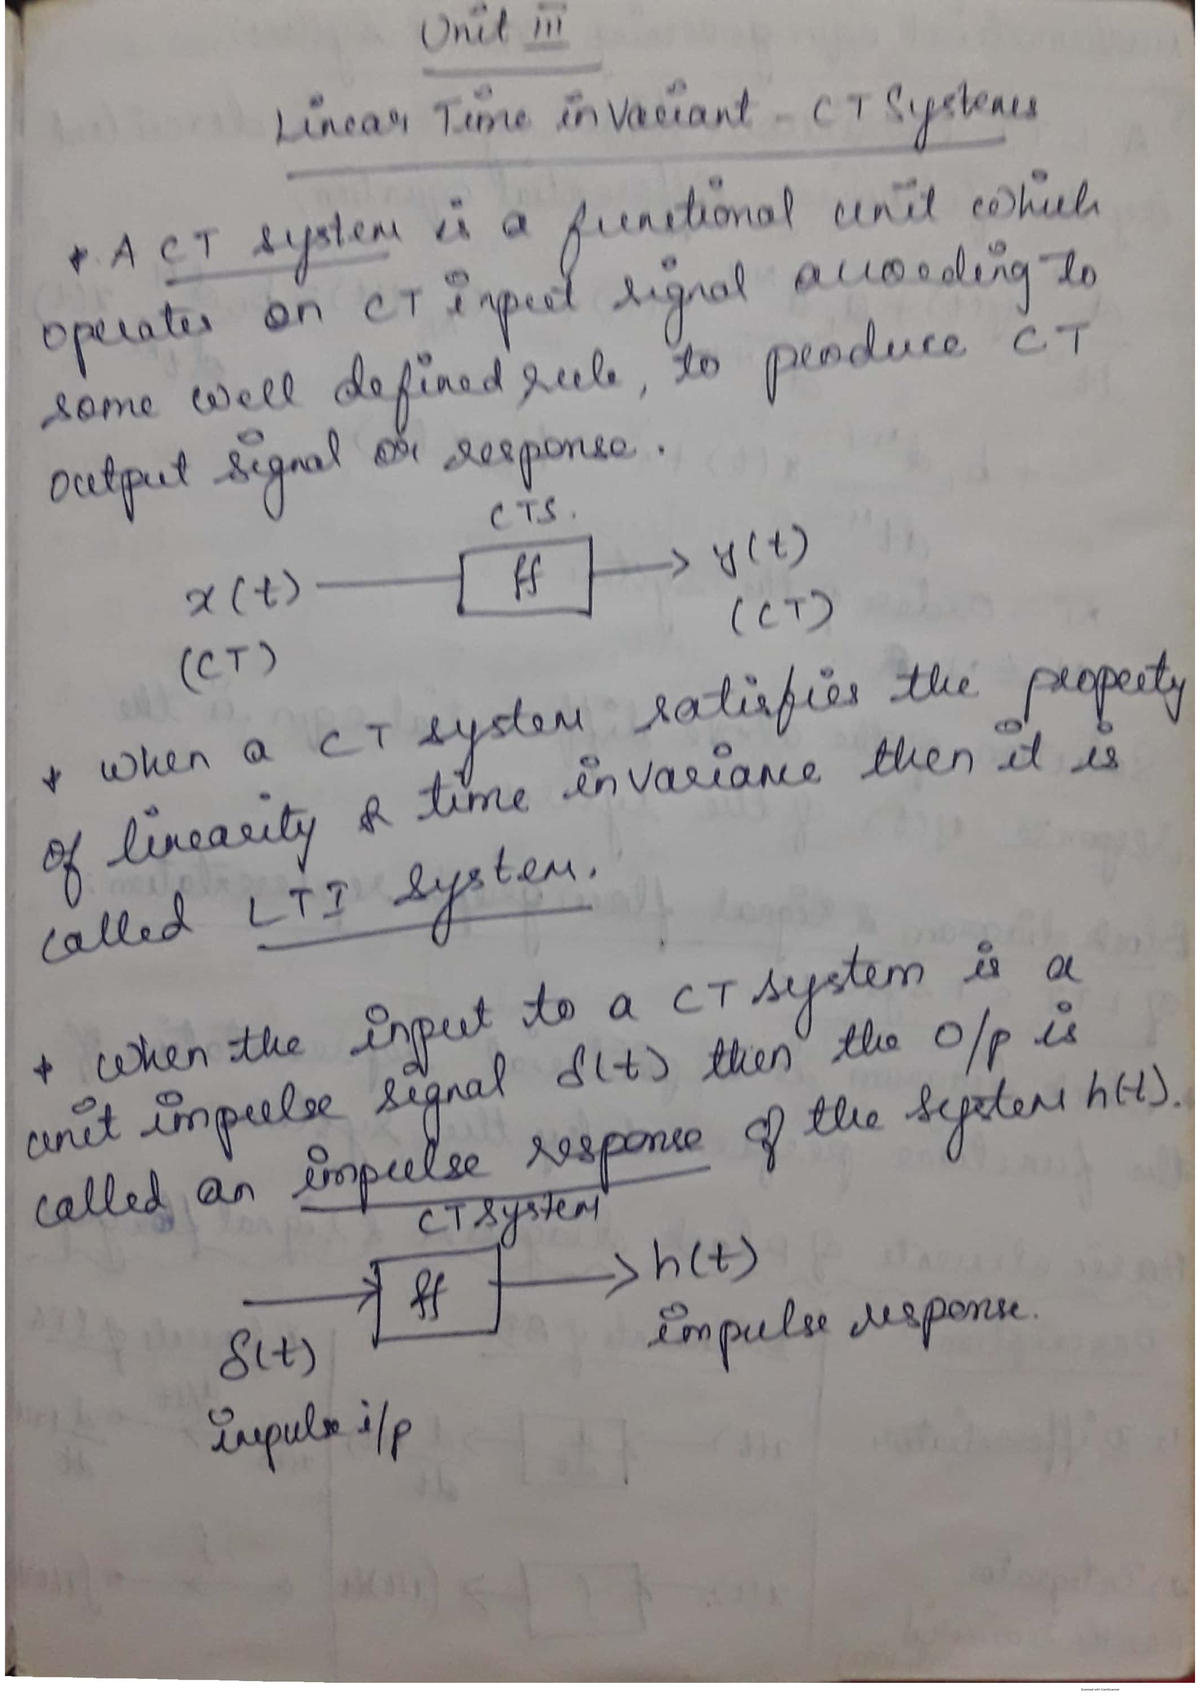 Unit III
Linear Time invariant - CT Systems
* A CT system is a functional unit which
operates on CT input signal according to
some well defined rule, to produce CT
output signal or response.
CTS.
x(t) y(t)
(CT) (CT)
* when a CT system satisfies the property
of linearity & time invariance then it is
called LTI system.
* when the input to a CT system is a
unit impulse signal δ(t) then the o/p is
called an impulse response of the system h(t).
CT system
h(t)
impulse response.
δ(t)
impulse i/p
Scanned with CamScanner